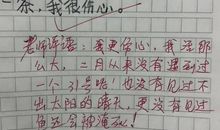 一条,我很伤心。
老师评语:我更伤心,我活那
么大,二月从来没有遇到过
一个31号呢!也没有见过不
出太阳的晴天,更没有见过
鱼还会被淹死!